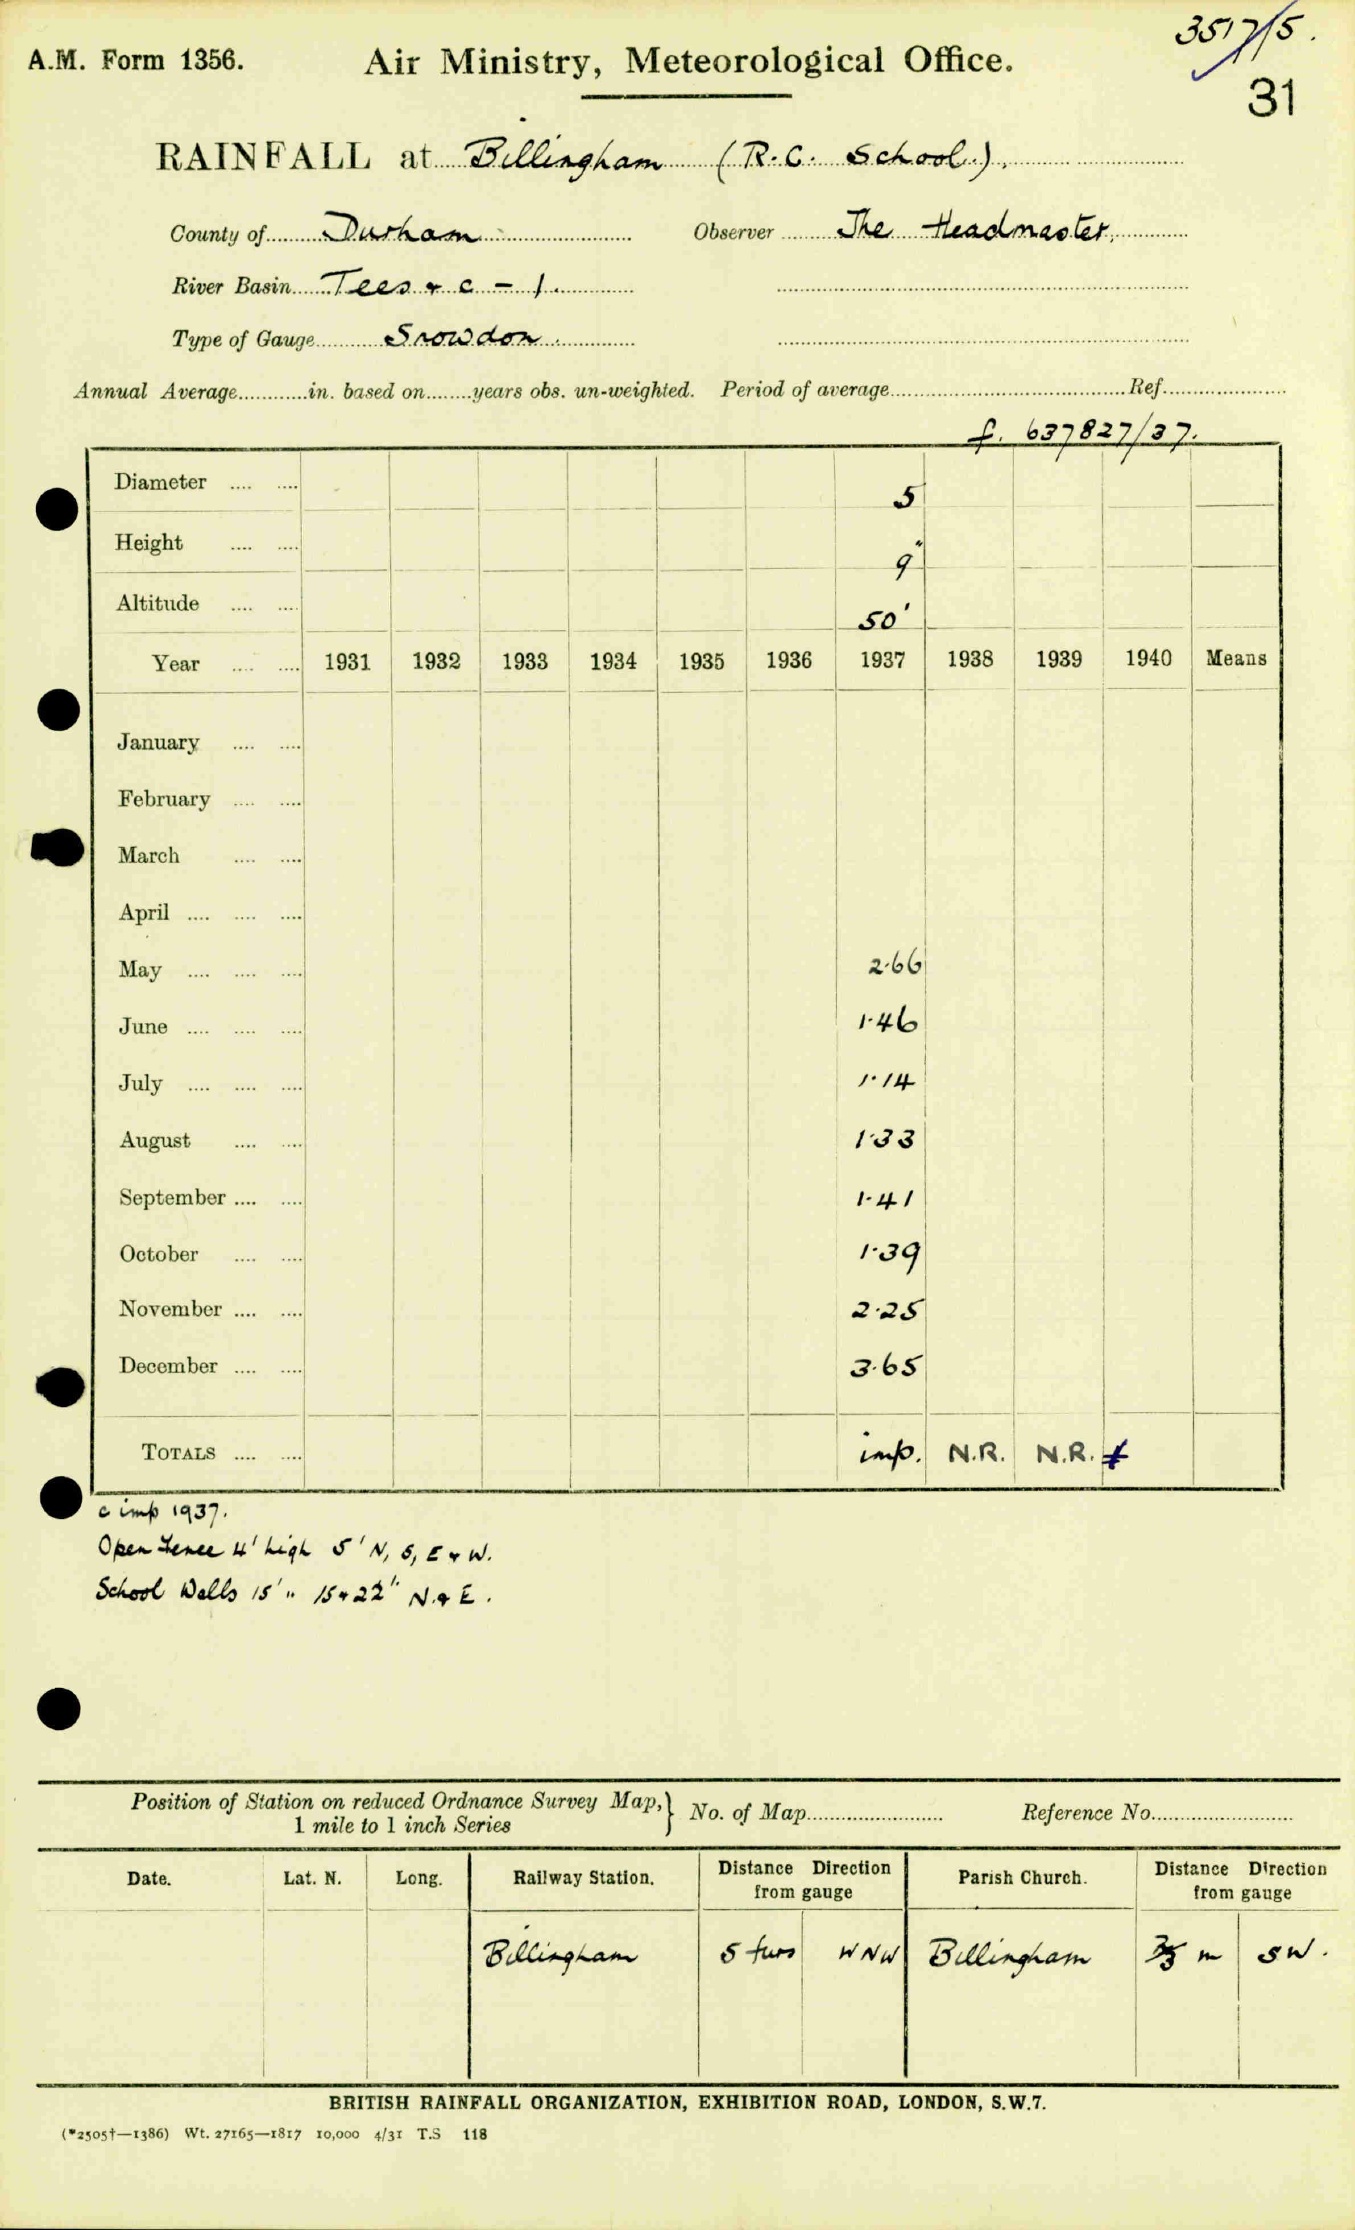 3517/5.
A.M. Form 1356. Air Ministry, Meteorological Office.
31
RAINFALL at Billingham (R.C. School).
County of Durham Observer The Headmaster.
River Basin Tees & c - 1.
Type of Gauge Snowdon.
Annual Average............in. based on........years obs. un-weighted. Period of average........................................Ref.....................
f. 637827/37.
Diameter .... .... 5
Height .... .... 9"
Altitude .... .... 50'
Year .... .... 1931 1932 1933 1934 1935 1936 1937 1938 1939 1940 Means
January .... ....
February .... ....
March .... ....
April .... .... ....
May .... .... .... 2.66
June .... .... .... 1.46
July .... .... .... 1.14
August .... .... 1.33
September .... .... 1.41
October .... .... 1.39
November .... .... 2.25
December .... .... 3.65
TOTALS .... .... imp. N.R. N.R. ‡
c imp 1937.
Open Fence 4' high 5' N, S, E & W.
School Walls 15' " 15 & 22" N. & E.
Position of Station on reduced Ordnance Survey Map,
1 mile to 1 inch Series } No. of Map........................ Reference No.........................
Date. Lat. N. Long. Railway Station. Distance Direction from gauge Parish Church. Distance Direction from gauge
Billingham 5 furs WNW Billingham m SW.
BRITISH RAINFALL ORGANIZATION, EXHIBITION ROAD, LONDON, S.W.7.
(*2505†—1386) Wt. 27165—1817 10,000 4/31 T.S 118